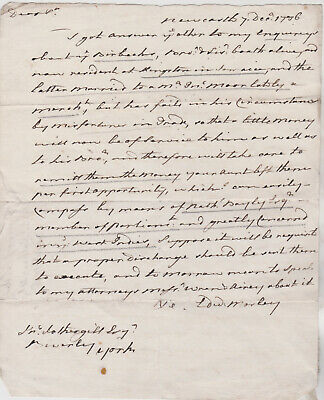 Dear Sr.
Newcastle 7 Decr. 1776
I got answer yr. letter to my Enquireys
about ye Birbecks, Bror. & Sisr. boath alive and
now resident at Kingston in Jamaica and the
latter married to a Mr. Jno. Moor lately a
mercht., but has fail'd in his Circumstance
by misfortunes in trade, so that a little Money
will now be of service to him as well as
to his Bror., and therefore will take care to
remitt them the Money your Aunt left them
per first opportunity, which I can easily
Compass by means of Nath. Bayly Esqr.
member of Parliamt. and greatly Concern'd
in ye West Indies, Suppose it will be requisit
that a proper discharge should be sent them
to execute, and to morrow mean to speak
to my attorneys Messrs. Wren & Airey about it
Edwd. Mosley
Jno. Fothergill Esqr.
Beverley
York